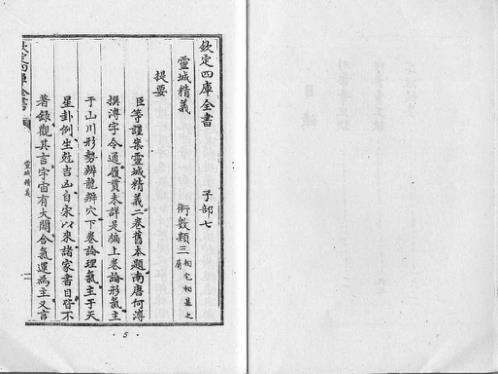 欽定四庫全書
子部七
靈城精義
術數類三 相宅相墓之屬
提要
臣等謹案靈城精義二卷舊本題南唐何溥
撰溥字令通履貫未詳是編上卷論形氣主
于山川形勢辨龍辨穴下卷論理氣主于天
星卦例生尅吉凶自宋以來諸家書目皆不
著錄觀其言宇宙有大關合氣運為主又言
欽定四庫全書
靈城精義
5
目錄